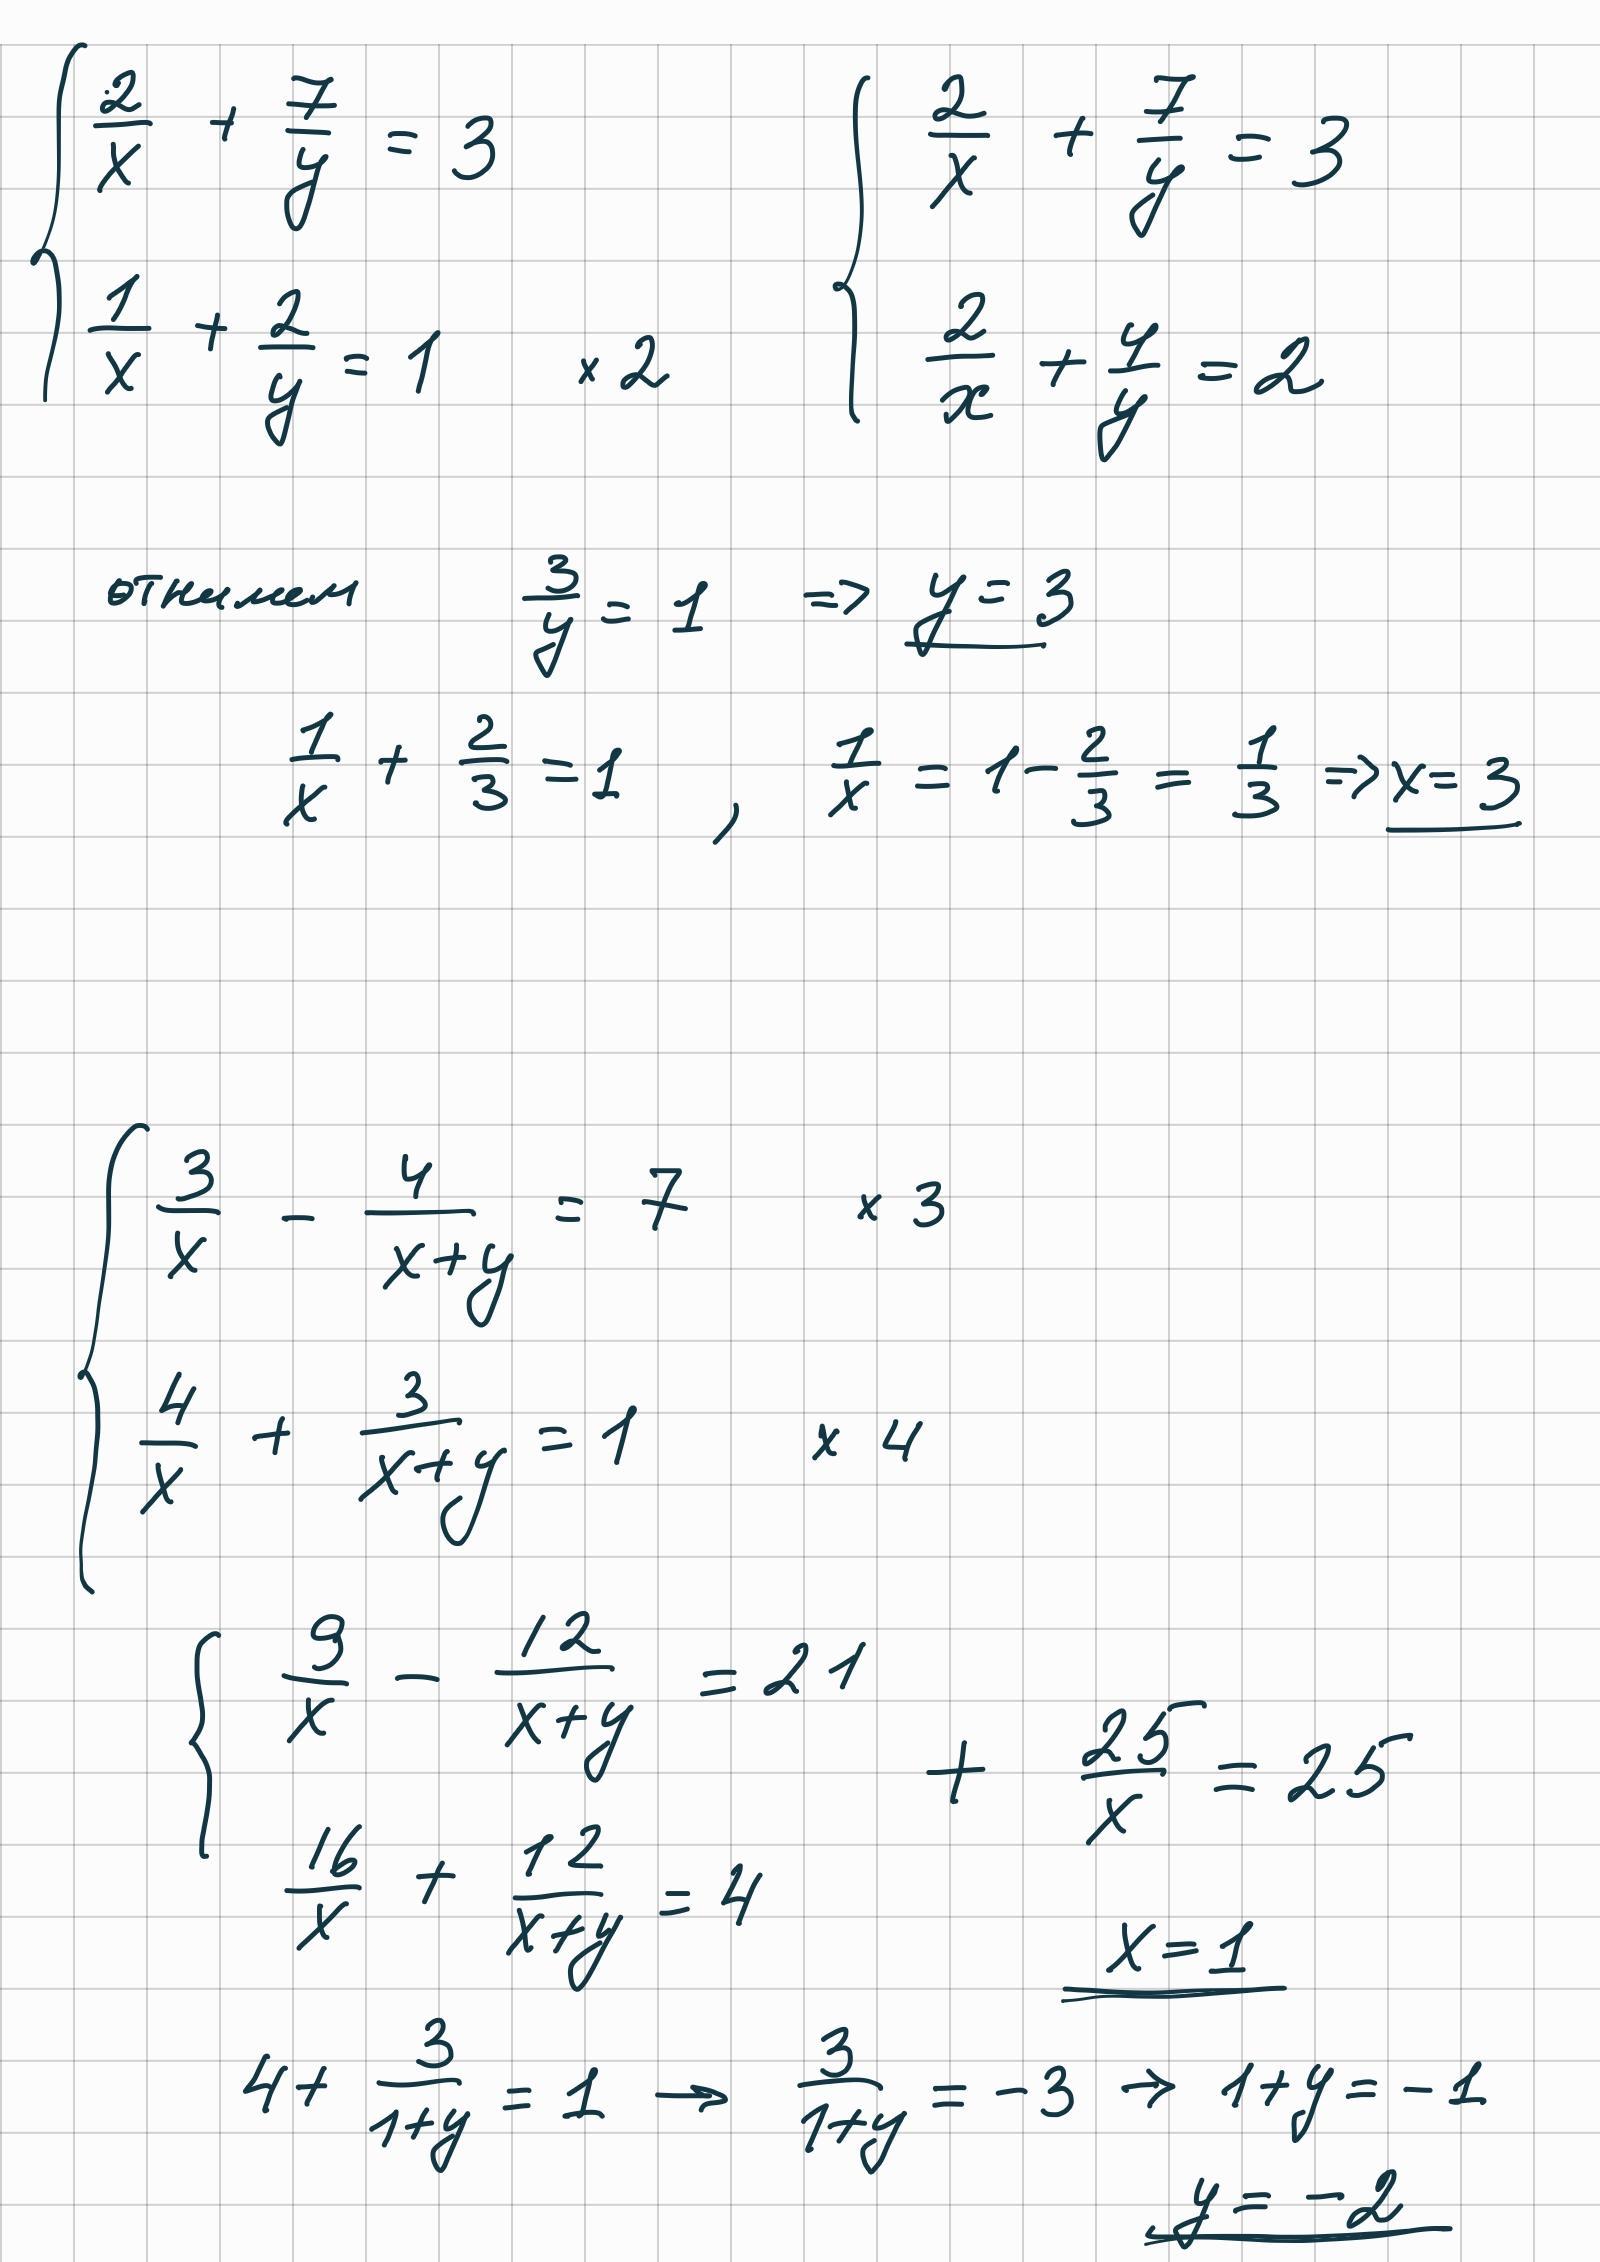 2/x + 7/y = 3
1/x + 2/y = 1 × 2
2/x + 7/y = 3
2/x + 4/y = 2
отнимем 3/y = 1 => y = 3
1/x + 2/3 = 1 , 1/x = 1 - 2/3 = 1/3 => x = 3
3/x - 4/(x+y) = 7 × 3
4/x + 3/(x+y) = 1 × 4
9/x - 12/(x+y) = 21
16/x + 12/(x+y) = 4
+ 25/x = 25
x = 1
4 + 3/(1+y) = 1 → 3/(1+y) = -3 → 1+y = -1
y = -2